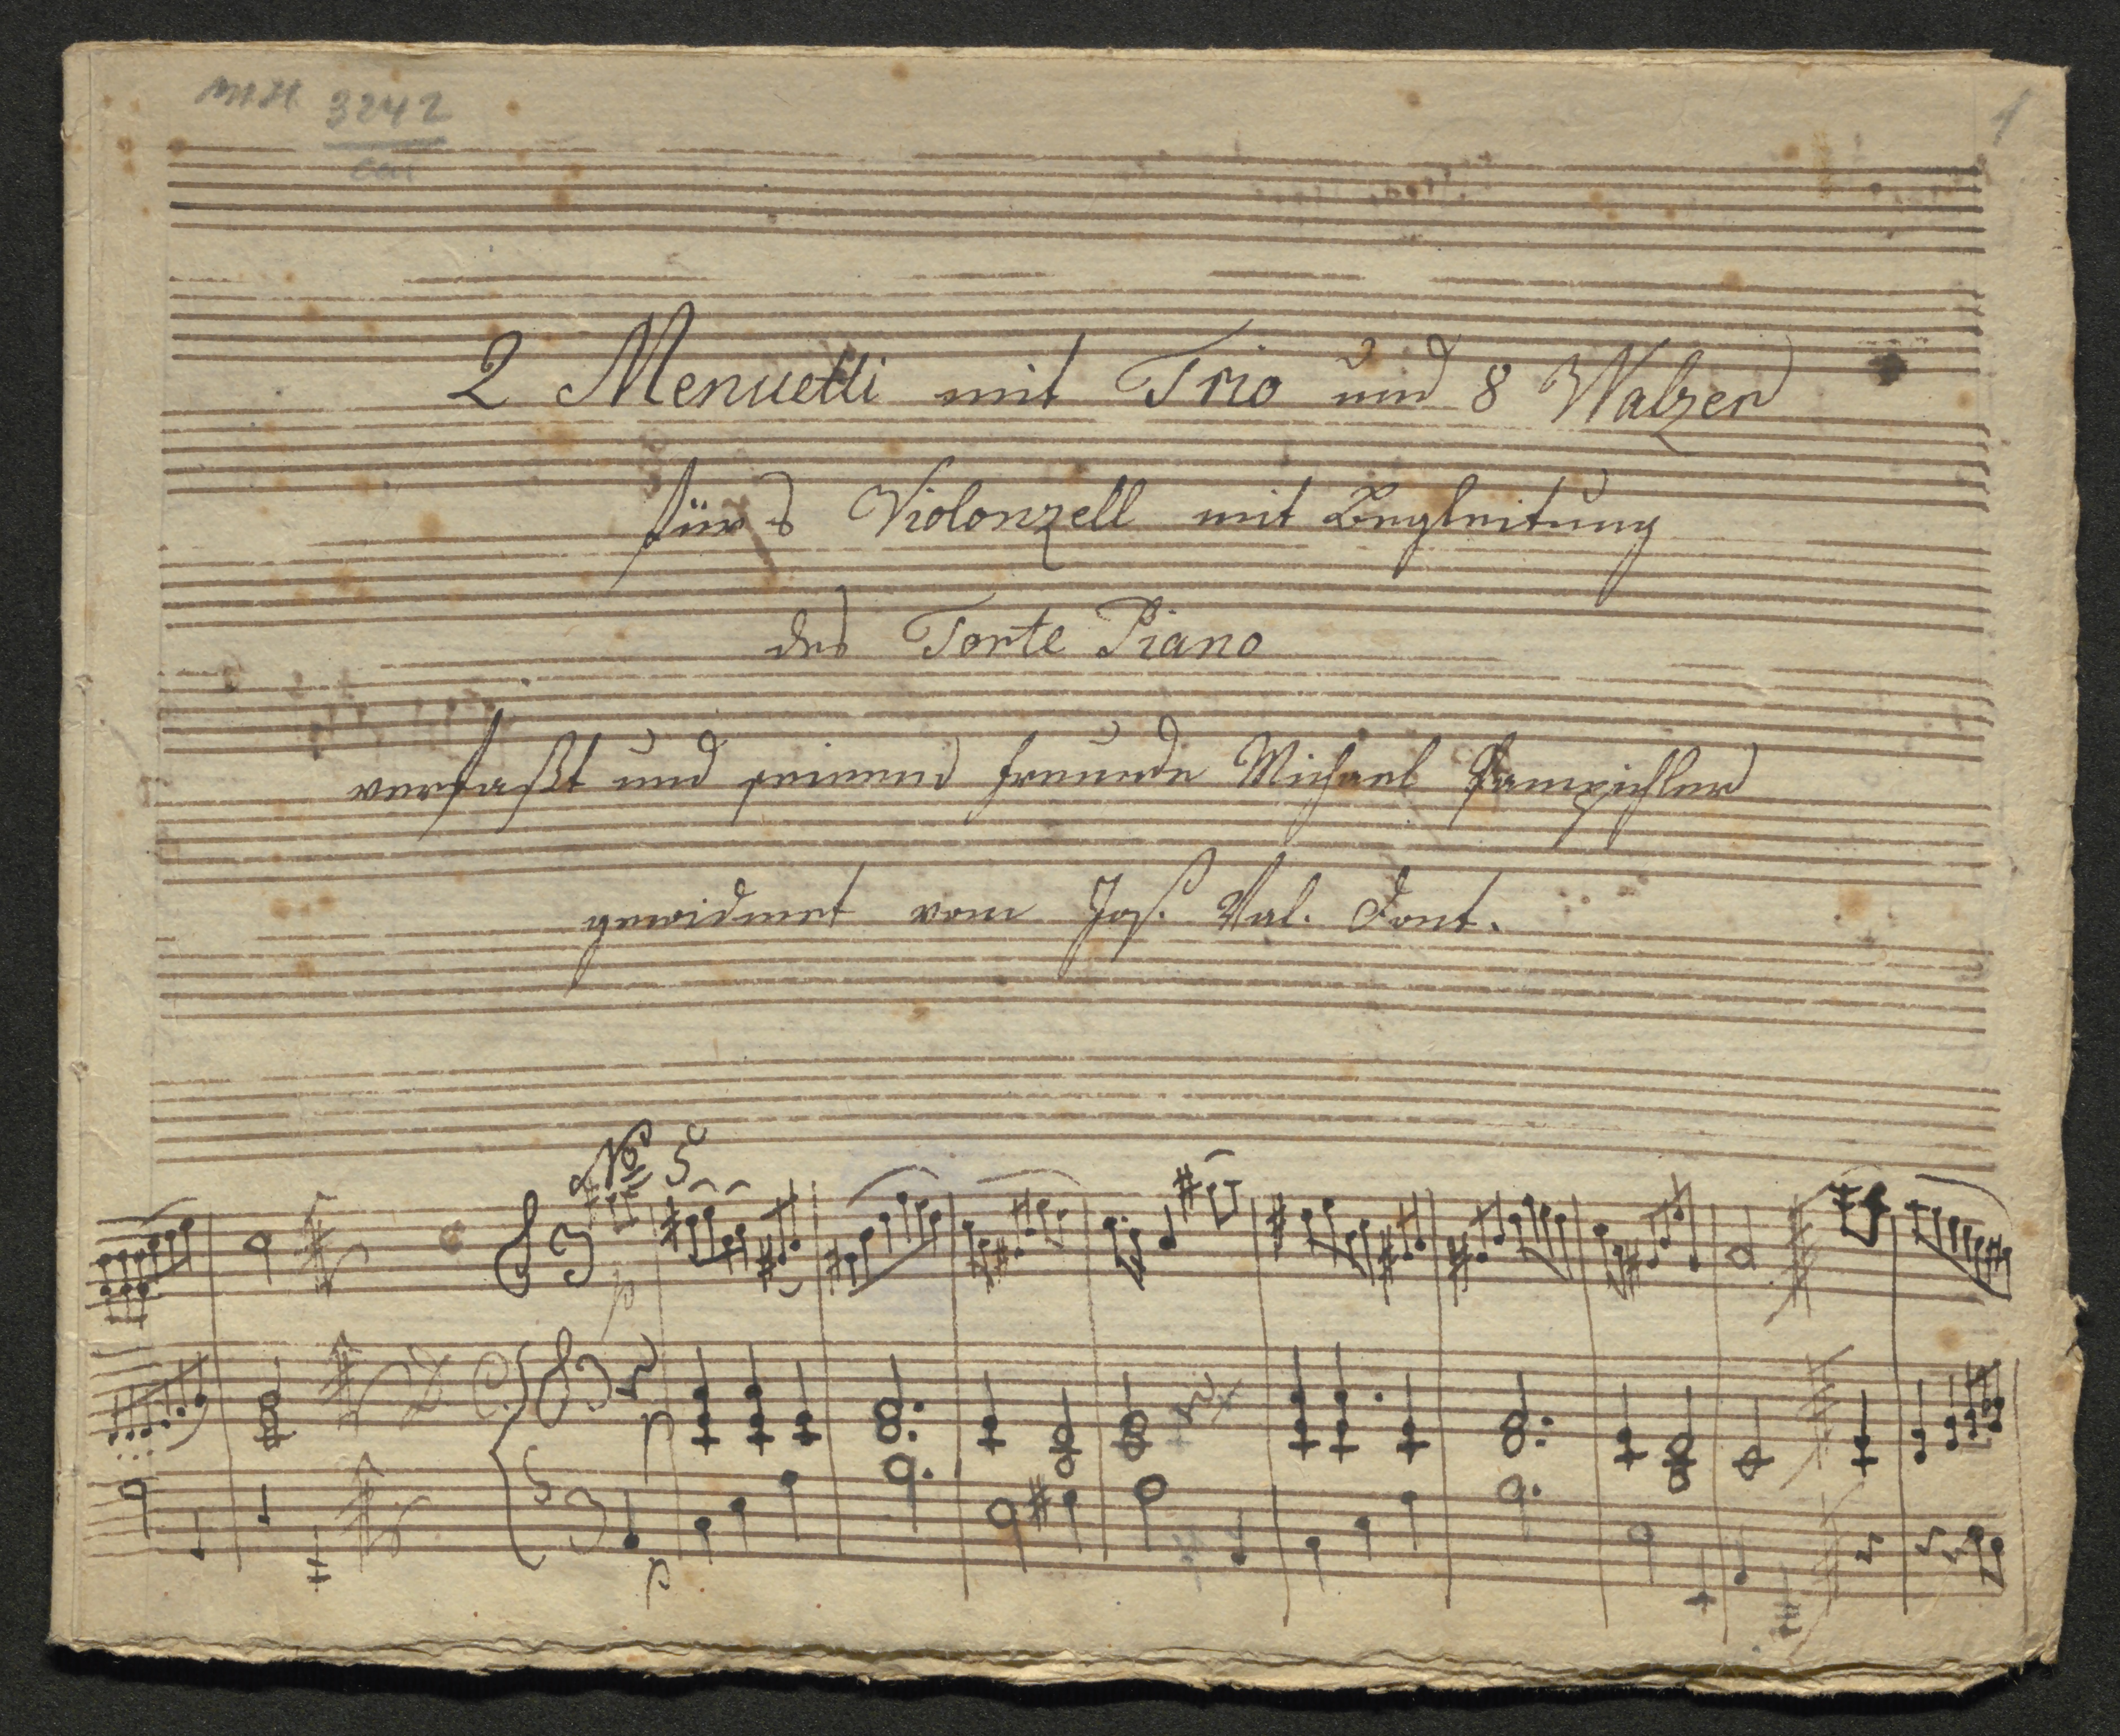 MH 3242
1
2 Menuetti mit Trio und 8 Walzer
fürs Violonzell mit Begleitung
des Forte Piano
verfaßt und seinem Freunde Michael
gewidmet von Jos. Val. Dont.
No 5
p
p
p